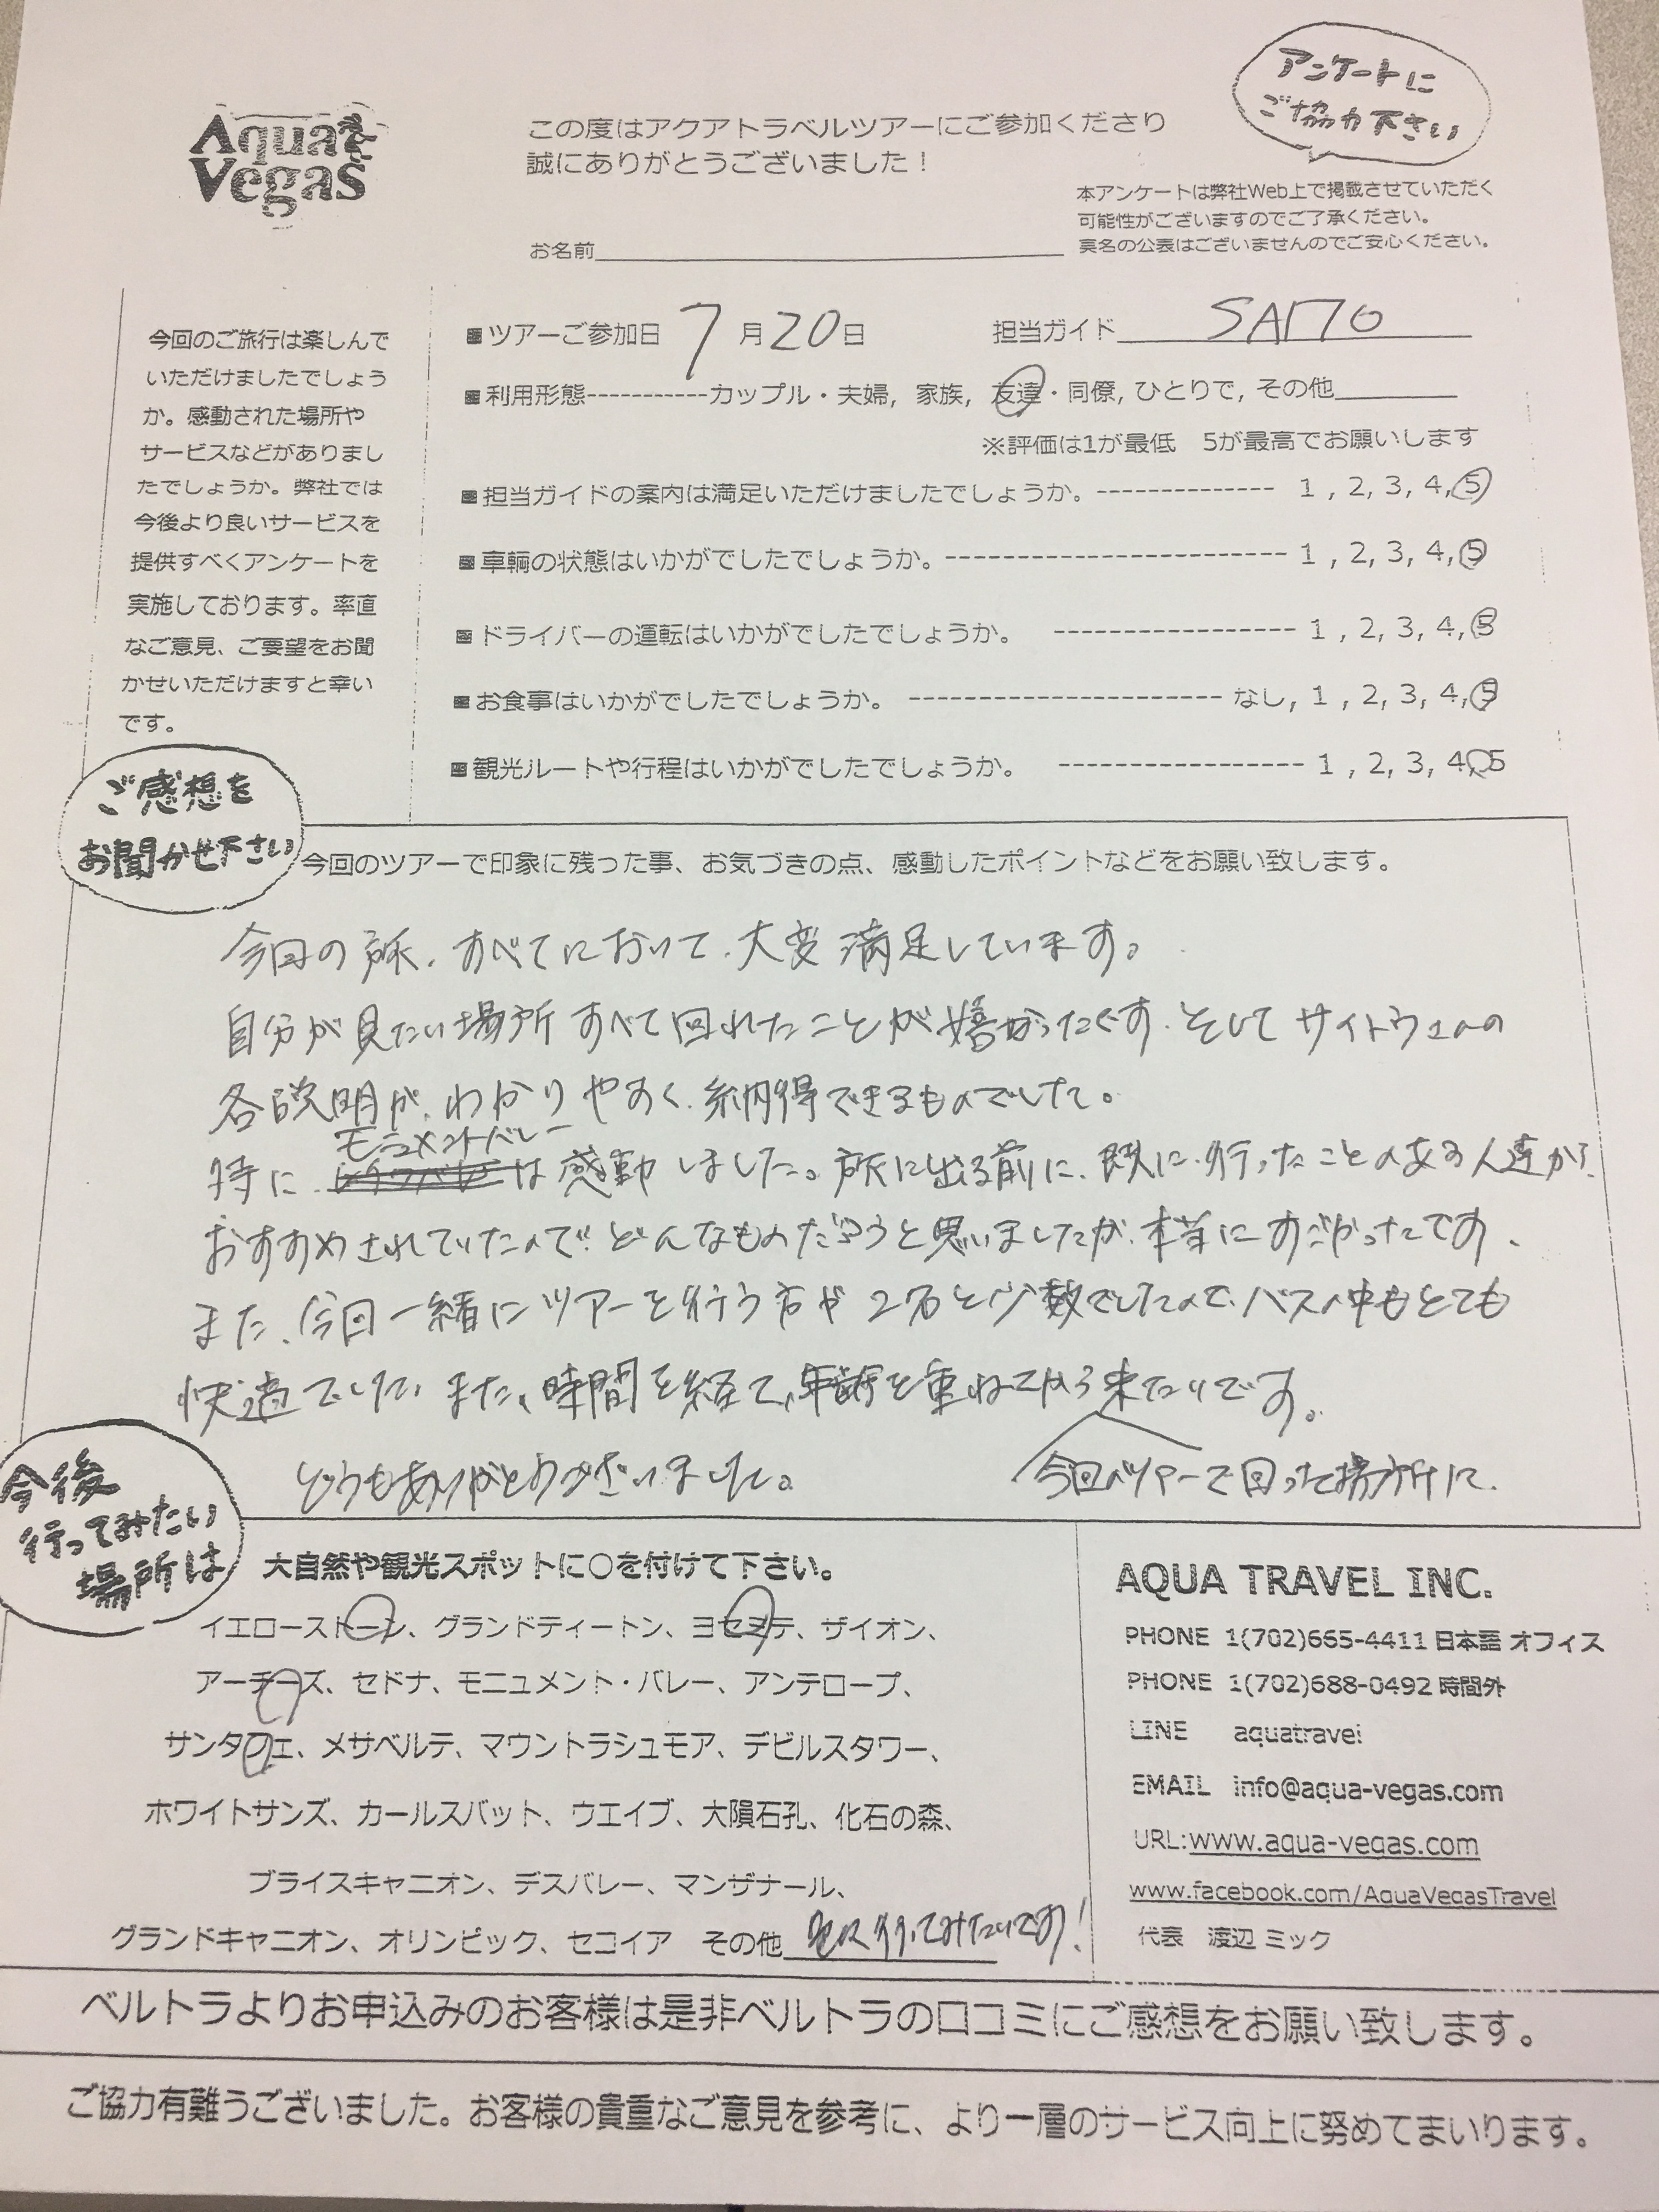 Aqua
Vegas
この度はアクアトラベルツアーにご参加くださり
誠にありがとうございました！
アンケートに
ご協力下さい
本アンケートは弊社Web上で掲載させていただく
可能性がございますのでご了承ください。
実名の公表はございませんのでご安心ください。
お名前
今回のご旅行は楽しんで
いただけましたでしょう
か。感動された場所や
サービスなどがありまし
たでしょうか。弊社では
今後より良いサービスを
提供すべくアンケートを
実施しております。率直
なご意見、ご要望をお聞
かせいただけますと幸い
です。
■ツアーご参加日 7月20日 担当ガイド SAITO
■利用形態-----------カップル・夫婦, 家族, 友達・同僚, ひとりで, その他
※評価は1が最低 5が最高でお願いします
■担当ガイドの案内は満足いただけましたでしょうか。-------------- 1 , 2, 3, 4, 5
■車輌の状態はいかがでしたでしょうか。--------------------------- 1 , 2, 3, 4, 5
■ドライバーの運転はいかがでしたでしょうか。 ------------------- 1 , 2, 3, 4, 5
■お食事はいかがでしたでしょうか。 ------------------------- なし, 1 , 2, 3, 4, 5
■観光ルートや行程はいかがでしたでしょうか。 ------------------- 1 , 2, 3, 4, 5
ご感想を
お聞かせ下さい
今回のツアーで印象に残った事、お気づきの点、感動したポイントなどをお願い致します。
今回の旅、すべてにおいて、大変満足しています。
自分が見たい場所すべて回れたことが嬉かったです。そしてサイトウさんの
各説明が、わかりやすく、納得できるものでした。
モニュメントバレー
特に、は感動しました。旅に出る前に、既に行ったことのある人達から
おすすめされていたので、どんなものだろうと思いましたが、本当にすごかったです。
また、今回一緒にツアーを行う方が2名と少数でしたので、バスの中もとても
快適でした。また、時間を経て、年齢を重ねてから来たいです。
今回のツアーで回った場所に、
どうもありがとうございました。
今後
行ってみたい
場所は
大自然や観光スポットに○を付けて下さい。
イエローストーン、グランドティートン、ヨセミテ、ザイオン、
アーチーズ、セドナ、モニュメント・バレー、アンテロープ、
サンタフェ、メサベルテ、マウントラシュモア、デビルスタワー、
ホワイトサンズ、カールスバット、ウエイブ、大隕石孔、化石の森、
ブライスキャニオン、デスバレー、マンザナール、
グランドキャニオン、オリンピック、セコイア その他 行ってみたいです！
AQUA TRAVEL INC.
PHONE 1(702)665-4411 日本語 オフィス
PHONE 1(702)688-0492 時間外
LINE aquatravel
EMAIL info@aqua-vegas.com
URL:www.aqua-vegas.com
www.facebook.com/AquaVegasTravel
代表 渡辺 ミック
ベルトラよりお申込みのお客様は是非ベルトラの口コミにご感想をお願い致します。
ご協力有難うございました。お客様の貴重なご意見を参考に、より一層のサービス向上に努めてまいります。